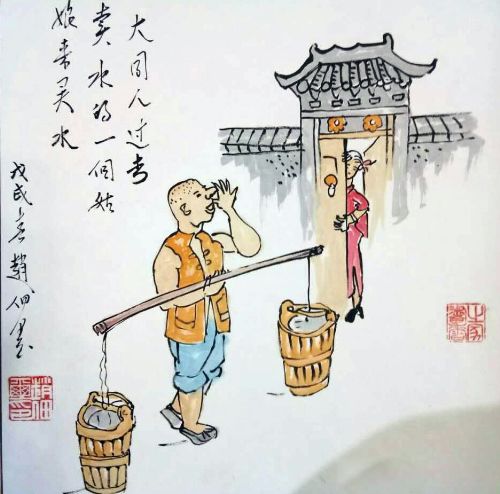 大同人过去
卖水的一個姑
娘来买水
戊戌 趙佃